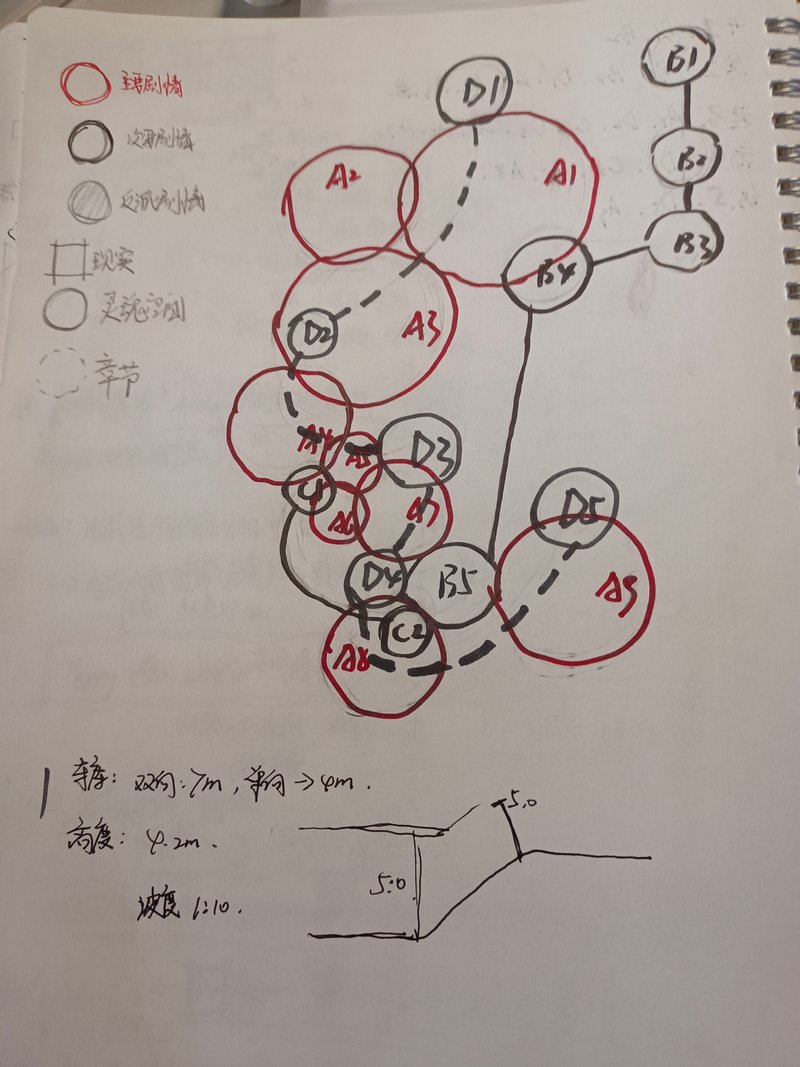 主要剧情
次要剧情
反派剧情
现实
灵魂空间
章节
D1
B1
A2
A1
B2
B3
B4
D2
A3
A4
A5
D3
C1
A6
A7
D4
B5
D5
A9
C2
A8
车库: 双向:7m, 单向→4m.
高度: 4.2m.
坡度 1:10.
5.0
5.0